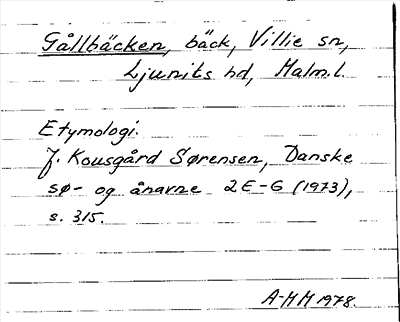 Gållbäcken, bäck, Villie sn,
Ljunits hd, Malm.l.
Etymologi.
Jf. Kousgård Sørensen, Danske
sø- og ånavne 2 E-G (1973),
s. 315.
A-MM 1978.